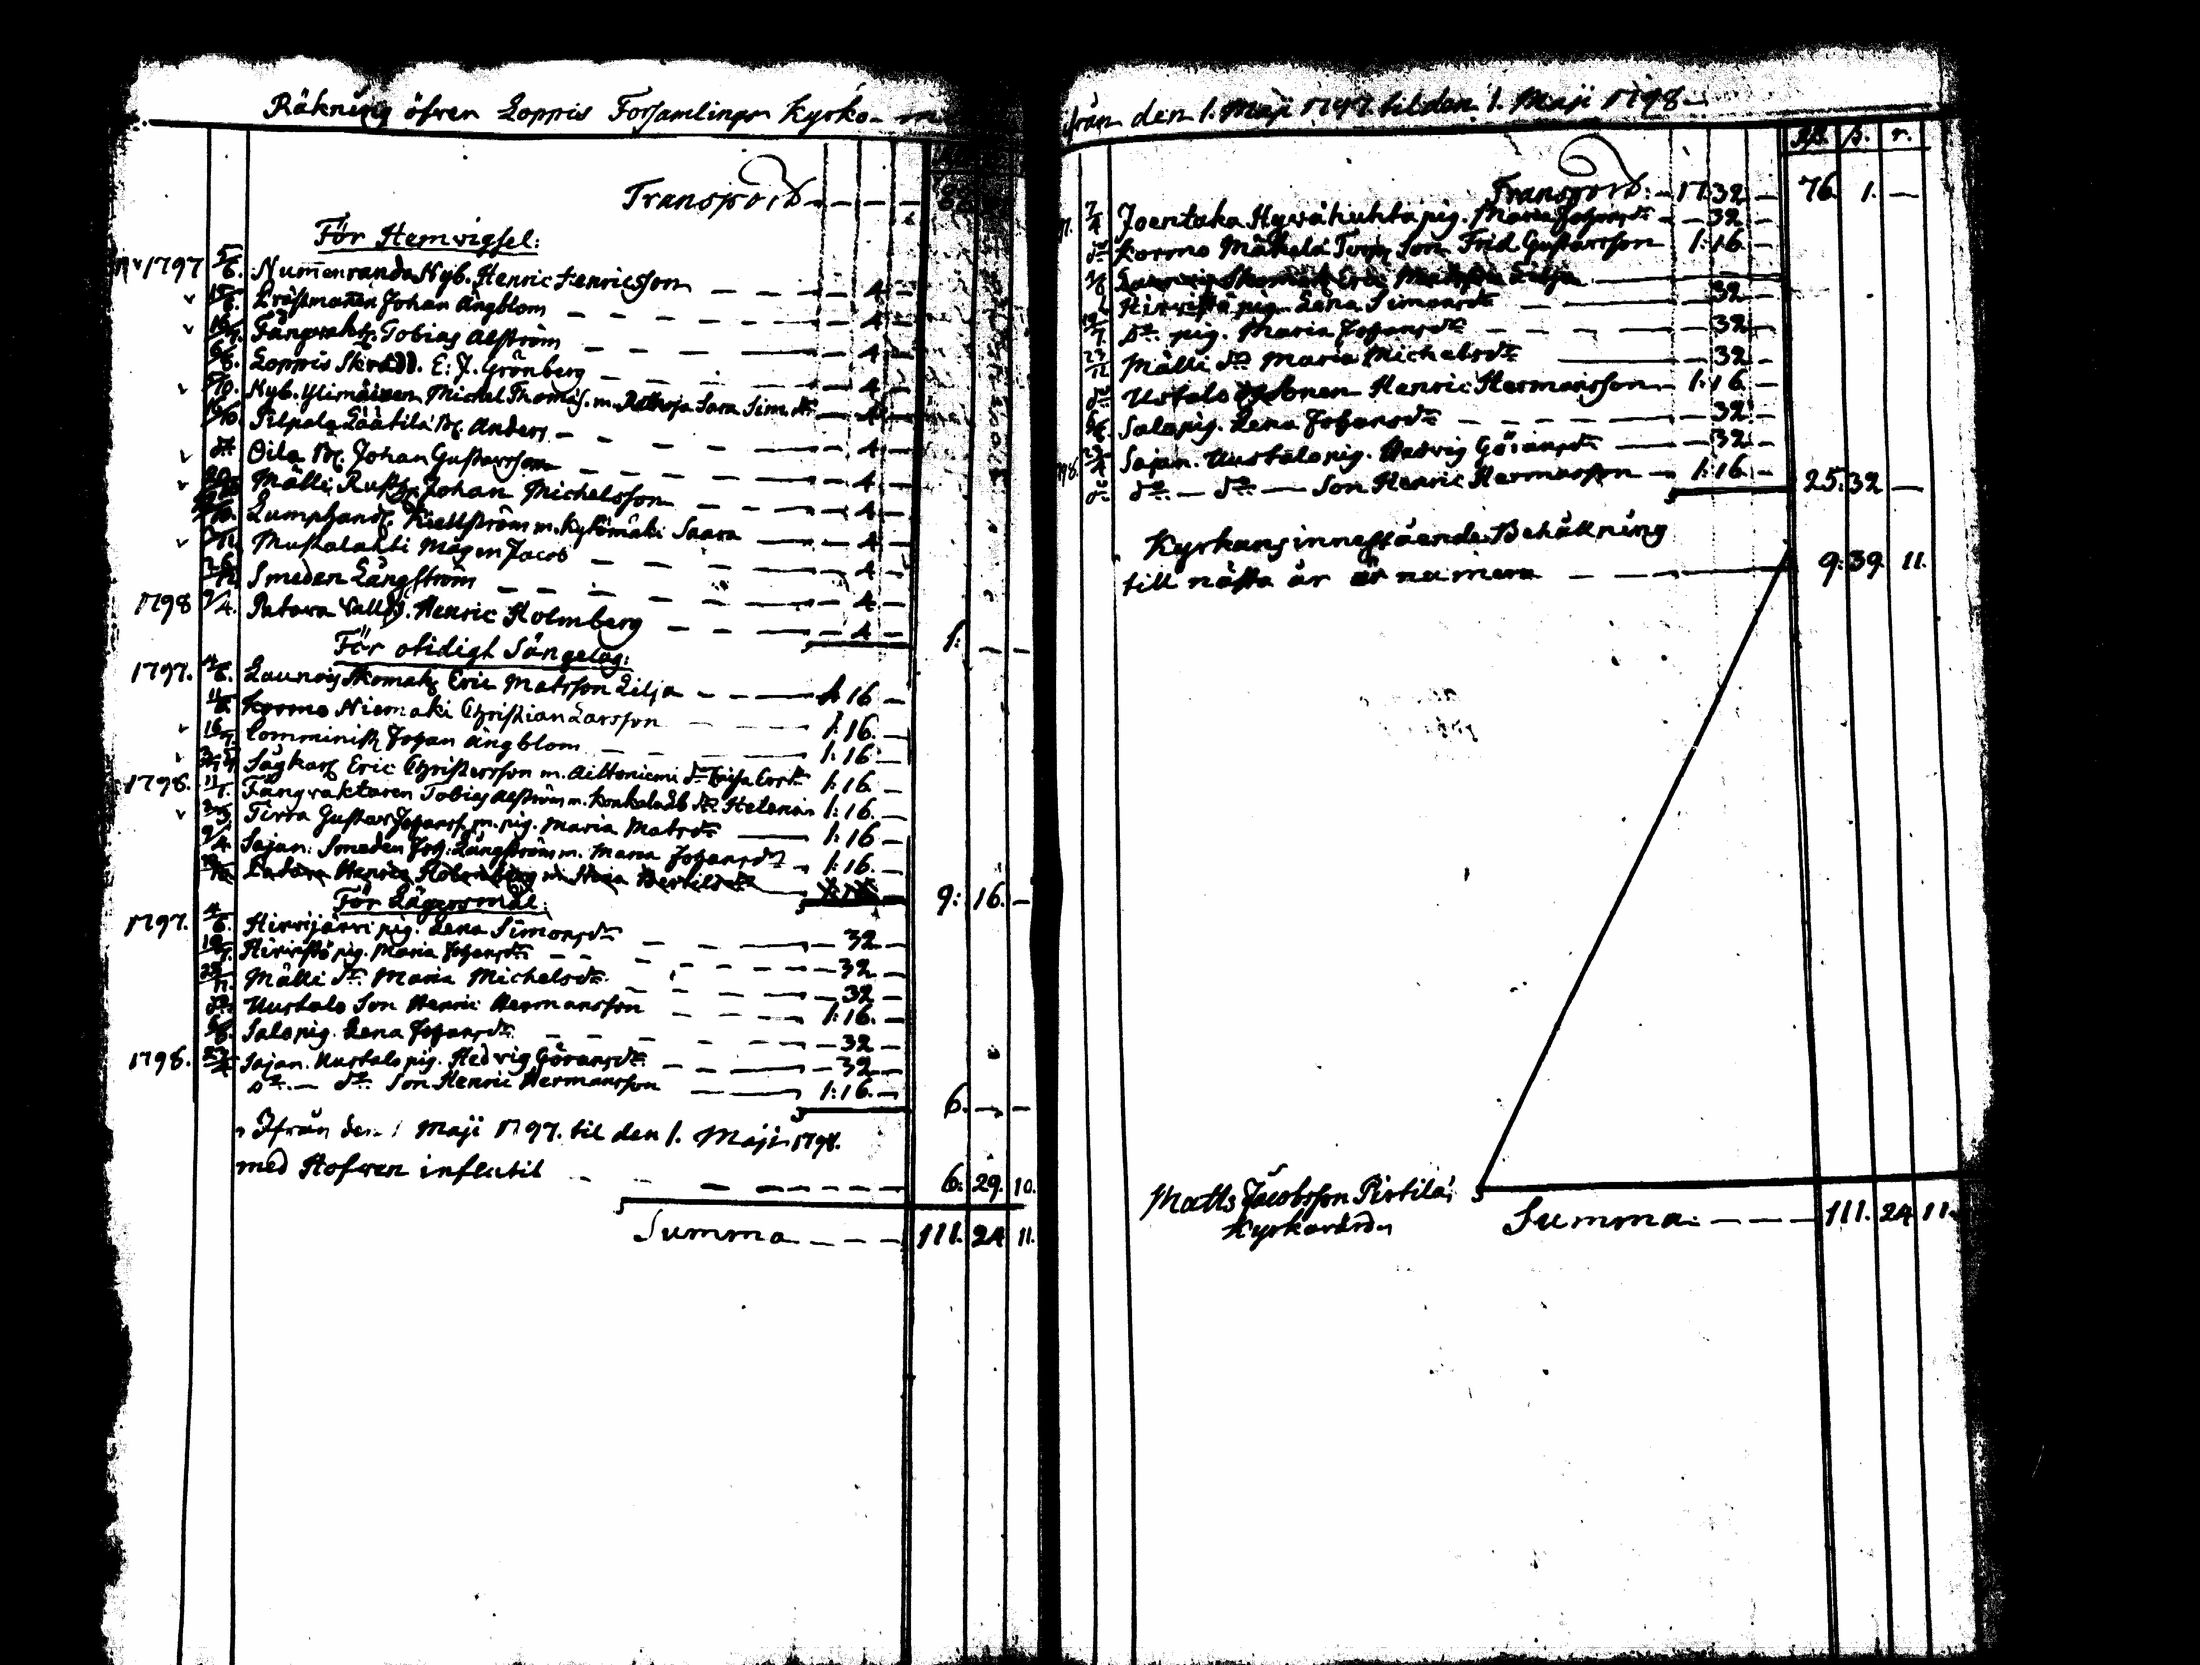 Räkning öfver Loppis Forsamlings Kyrko-
Transport
För Hemvigsel:
1797 5/6. Nummenranda Nyb. Henric Henricsson — 4 —
Johan Ångblom — 4 —
Fångvakt. Tobias Alström — 4 —
Loppis Skrädd. E: J. Grönberg — 4 —
Nyb. Ylimäinen Michel Thomas. m. Sara Sim. dr — 4 —
Pilpala Läätilä Anders — 4 —
do Oila Johan Gustavsson — 4 —
Mälli Rusth. Johan Michelsson — 4 —
m. Kytömäki Saara — 4 —
Mustalahti Mågen Jacob — 4 —
Smeden Långström — 4 —
1798 9/4. Henric Holmberg — 4 — 1: — —
För otidigt Sängelag:
1797. Launois Skomak. Eric Matsson Lilja — 1 16 —
Kormo Niemäki Christian Larsson — 1: 16. —
Comminist. Johan Ångblom — 1: 16 —
Sågkarl Eric Christersson m. Aittoniemi dr 1: 16. —
1798. Fångvaktaren Tobias Alström m. dr Helena 1: 16. —
Tirra Gustav Johans. m. pig. Maria Matsdr — 1: 16 —
9/4. Sajan: Smeden Joh: Långström m. Maria Johansdr — 1: 16. —
Henric Holmberg m. Bertilsdr — 9: 16. —
För Lägersmål:
1797. 4/6. Hirvijärvi pig. Lena Simonsdr — 32 —
Hirvistö pig. Maria Johansdr — 32 —
Mälli dr Maria Michelsdr — 32 —
do Uustalo Son Henric Hermansson — 1: 16. —
Salo pig. Lena Johansdr — 32 —
1798. Sajan. Uustalo pig. Hedvig Göransdr — 32 —
do — do Son Henric Hermansson — 1: 16. — 6. — —
Ifrån den 1 Maji 1797. til den 1. Maji 1798.
med Hofven influtit — 6: 29. 10.
Summa — 111. 24 11.
ifrån den 1. Maji 1797 til den 1. Maji 1798
r.
Transport: — 17: 32 — 76. 1. —
7/4 Joentaka Hyvähuhta pig. Maria Johansdr — 32 —
do Kormo Mäkelä Torp. Son Frid. Gustavsson 1: 16. —
Launois Skomak. Eric Matsson Lilja
Hirvistö pig. Lena Simonsdr — 32 —
do pig. Maria Johansdr — 32 —
Mälli dr Maria Michelsdr — 32 —
do Ustalo Henric Hermansson — 1: 16 —
Salo pig. Lena Johansdr — 32 —
Sajan. Uustalo pig. Hedvig Göransdr — 32 —
do do — do — Son Henric Hermansson — 1: 16. — 25: 32 —
Kyrkans innestående Behållning
till nästa år är numera — 9: 39. 11.
Matts Jacobsson Pirtilä,
Kyrkovärd
Summa: — 111. 24 11.